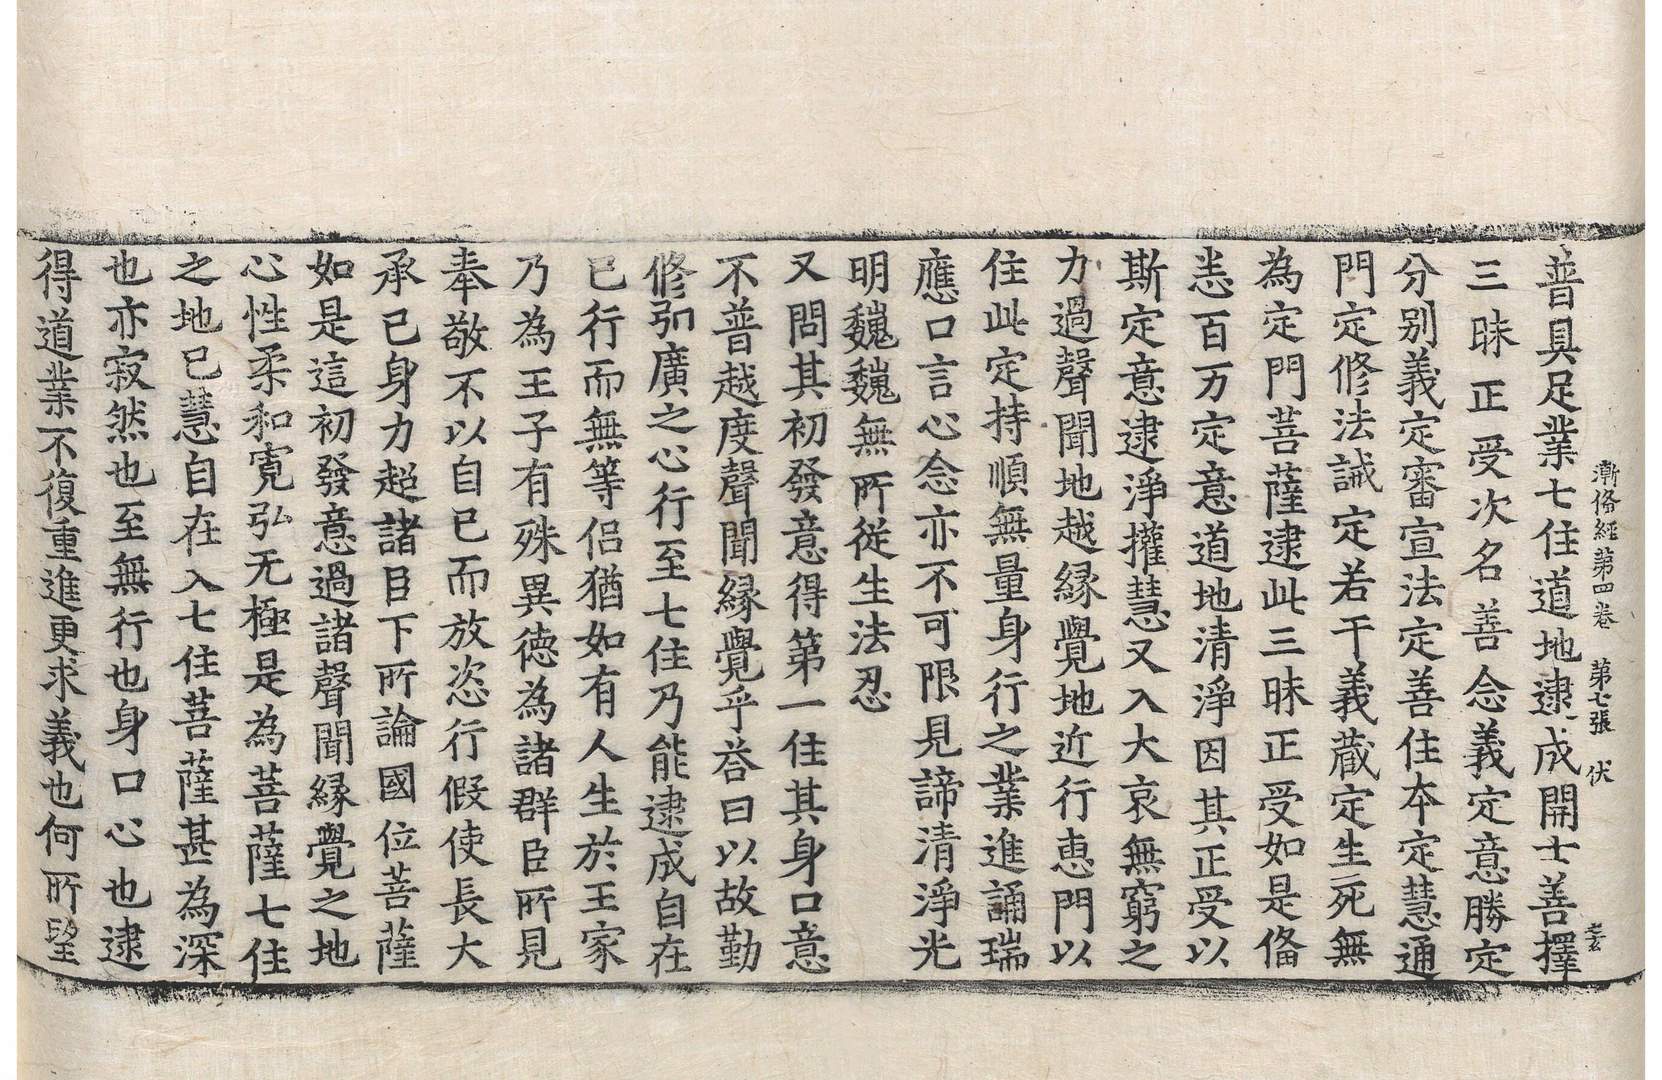 漸俻經第四卷　第七張　伏
普具足業七住道地逮成開士善擇
三昧正受次名善念義定意勝定
分别義定審宣法定善住本定慧通
門定修法誡定若干義藏定生死無
為定門菩薩逮此三昧正受如是俻
悉百万定意道地清淨因其正受以
斯定意逮淨權慧又入大哀無窮之
力過聲聞地越緣覺地近行恵門以
住此定持順無量身行之業進誦瑞
應口言心念亦不可限見諦清淨光
明巍巍無所從生法忍
又問其初發意得第一住其身口意
不普越度聲聞緣覺乎荅曰以故勤
修弘廣之心行至七住乃能逮成自在
已行而無等侶猶如有人生於王家
乃為王子有殊異德為諸群臣所見
奉敬不以自已而放恣行假使長大
承己身力超諸臣下所論國位菩薩
如是這初發意過諸聲聞緣覺之地
心性柔和寬弘无極是為菩薩七住
之地已慧自在入七住菩薩甚為深
也亦寂然也至無行也身口心也逮
得道業不復重進更求義也何所望